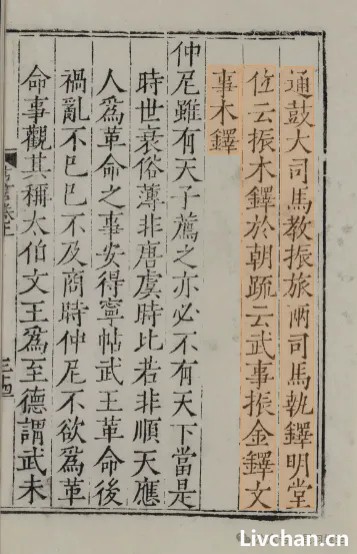 通鼓大司馬教振旅兩司馬執鐸明堂
位云振木鐸於朝䟽云武事振金鐸文
事木鐸
仲尼雖有天子薦之亦必不有天下當是
時世衰俗薄非唐虞時比若非順天應
人爲革命之事安得寧帖武王革命後
禍亂不巳巳不及商時仲尼不欲爲革
命事觀其稱太伯文王爲至德謂武未
Livchan.com